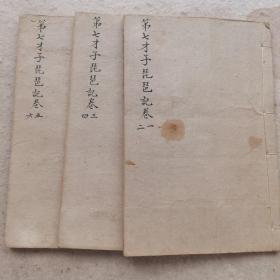 第七才子琵琶記卷
一二
第七才子琵琶記卷
三四
第七才子琵琶記卷
五六